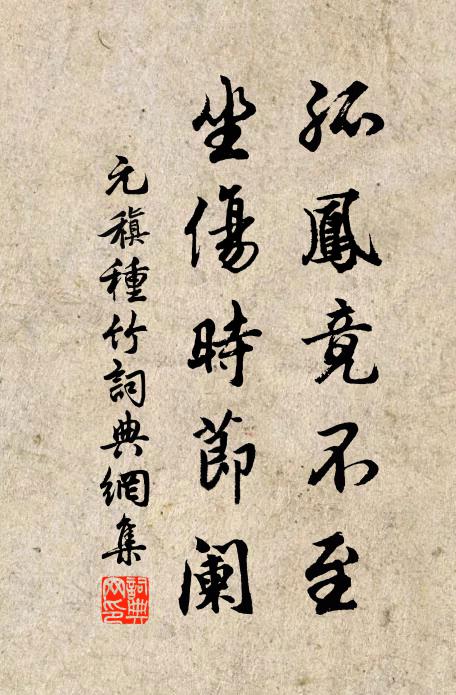 孤鳳竟不至
坐傷時節闌
元稹種竹詞典網集
詞典網印